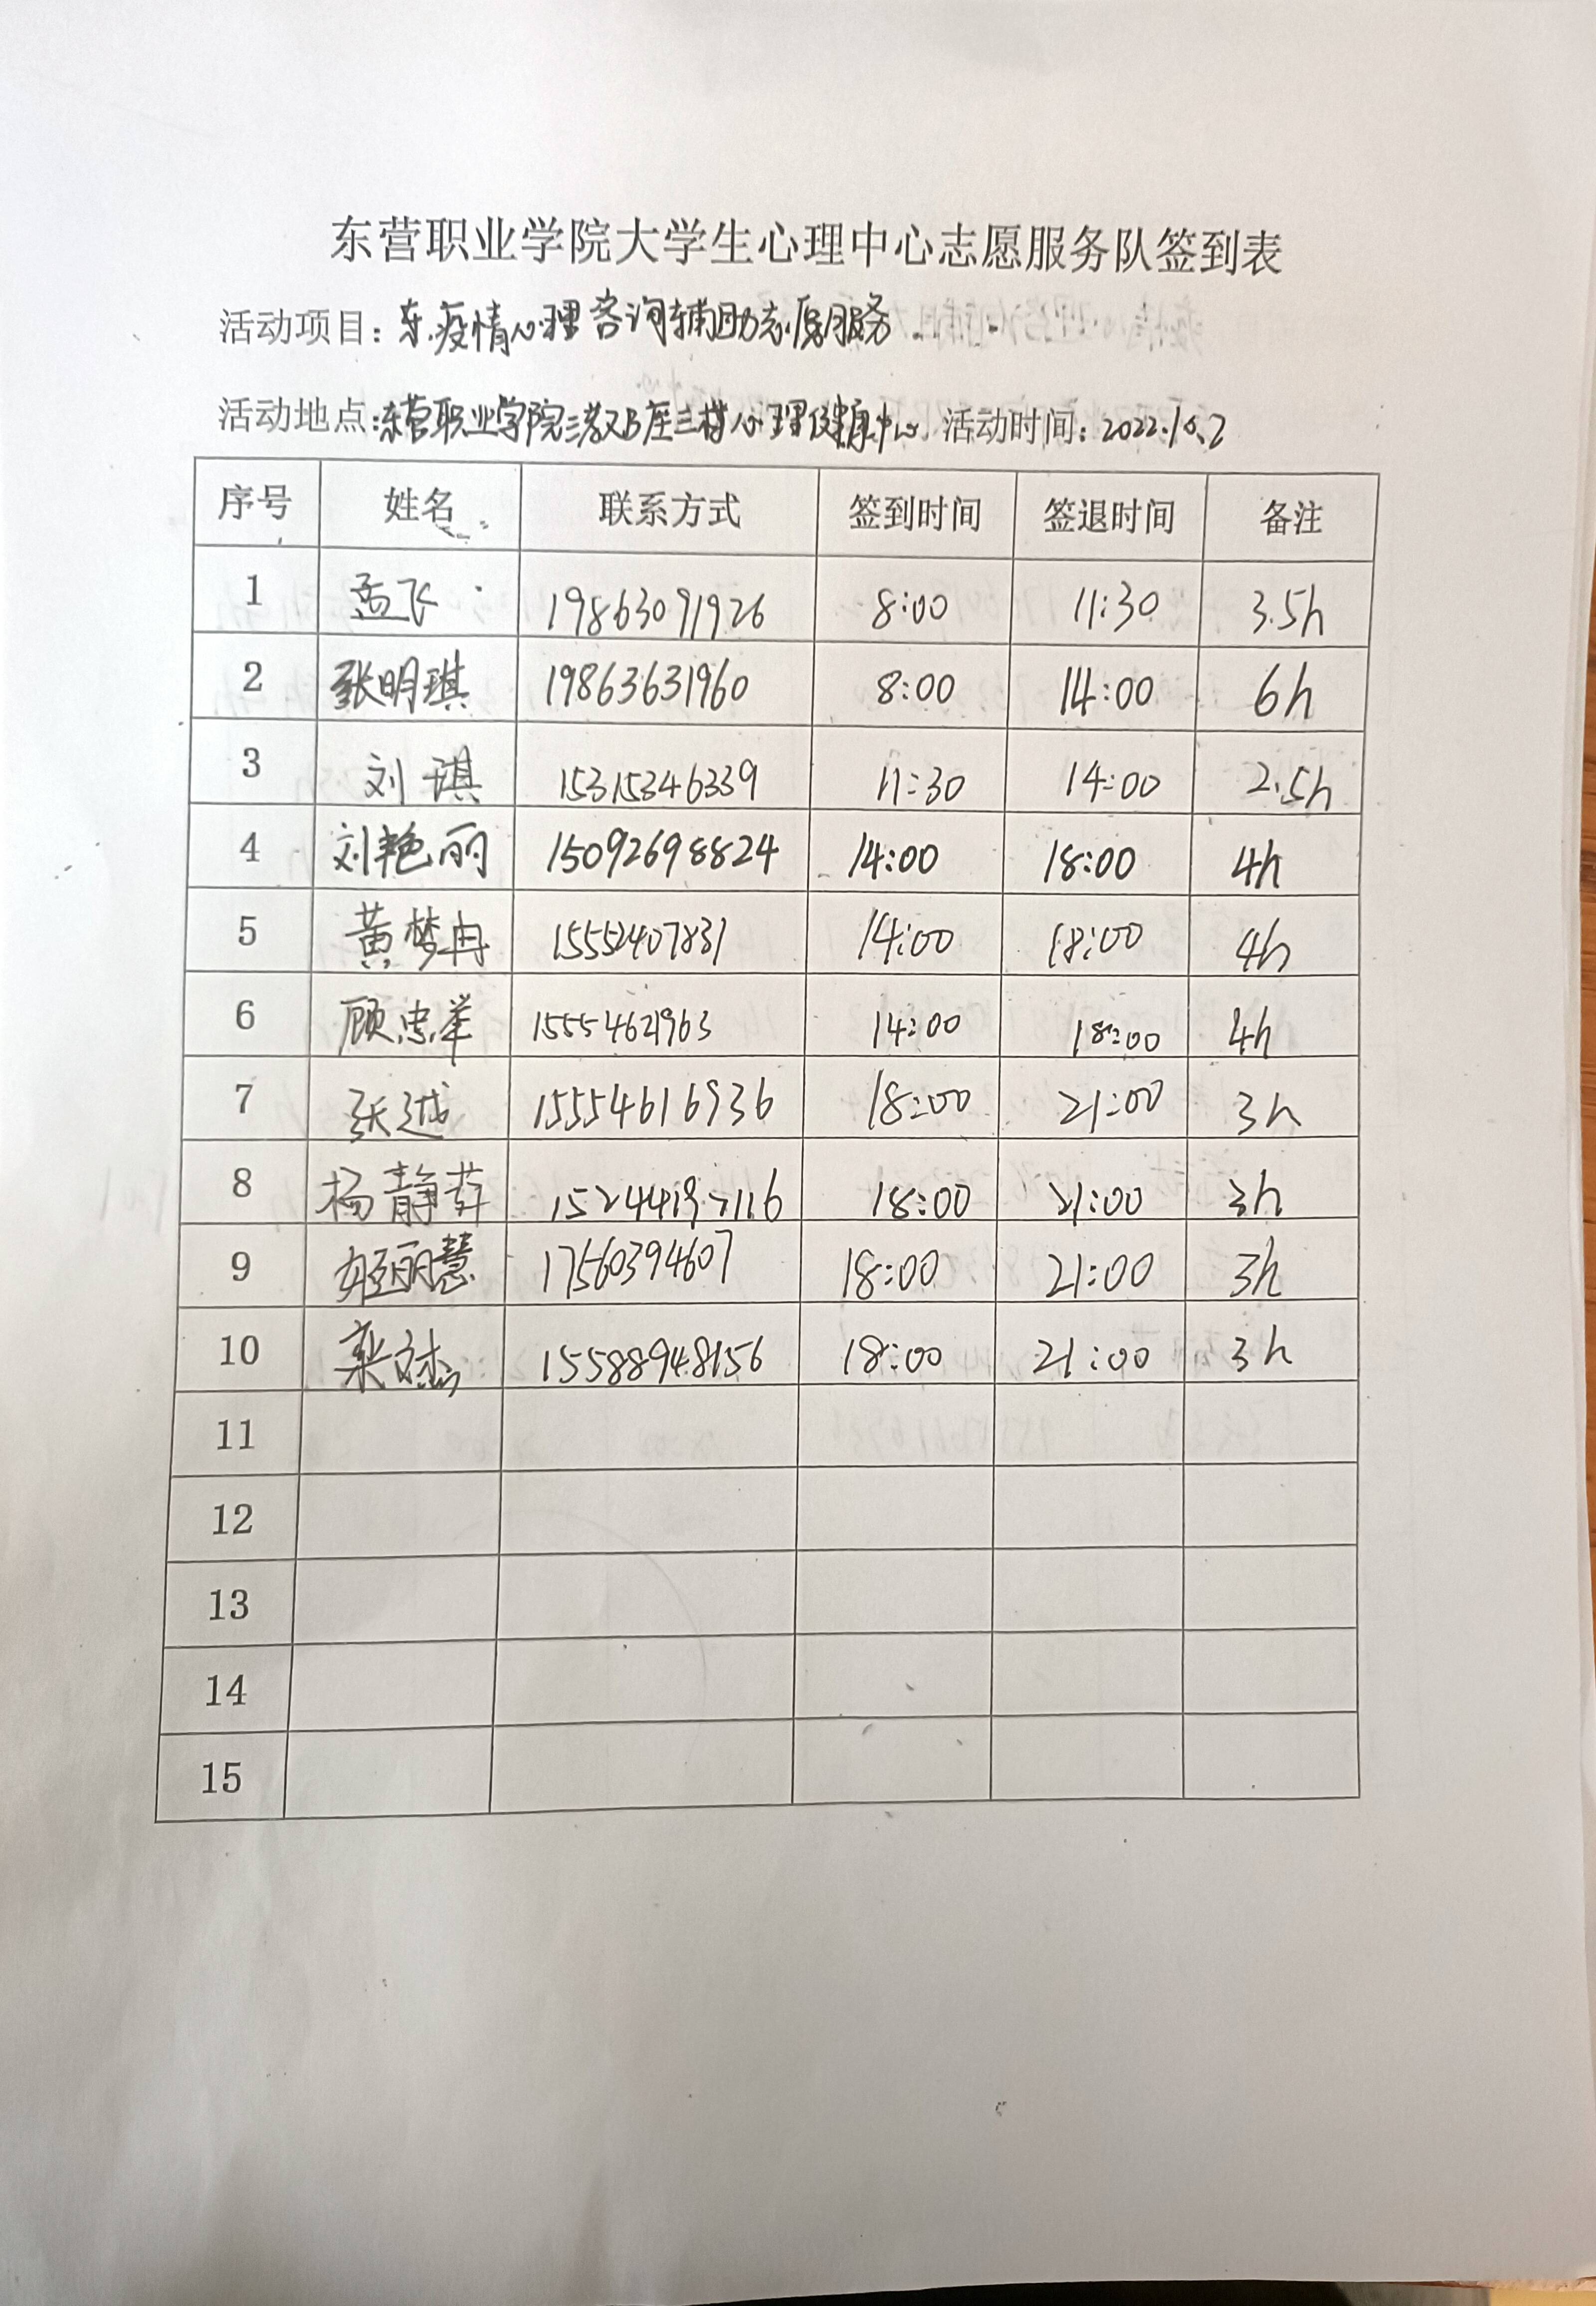 东营职业学院大学生心理中心志愿服务队签到表
活动项目：东.疫情心理咨询辅助志愿服务
活动地点：东营职业学院三教B座三楼心理健康中心 活动时间：2022.10.2
序号 姓名 联系方式 签到时间 签退时间 备注
1 孟飞 19863091926 8:00 11:30 3.5h
2 张明琪 19863631960 8:00 14:00 6h
3 刘琪 15315346339 11:30 14:00 2.5h
4 刘艳丽 15092698824 14:00 18:00 4h
5 黄梦冉 15552407831 14:00 18:00 4h
6 顾忠举 15554621963 14:00 18:00 4h
7 张越 15554616936 18:00 21:00 3h
8 杨静 18:00 21:00 3h
9 姬丽慧 17560394607 18:00 21:00 3h
10 15588948156 18:00 21:00 3h
11
12
13
14
15